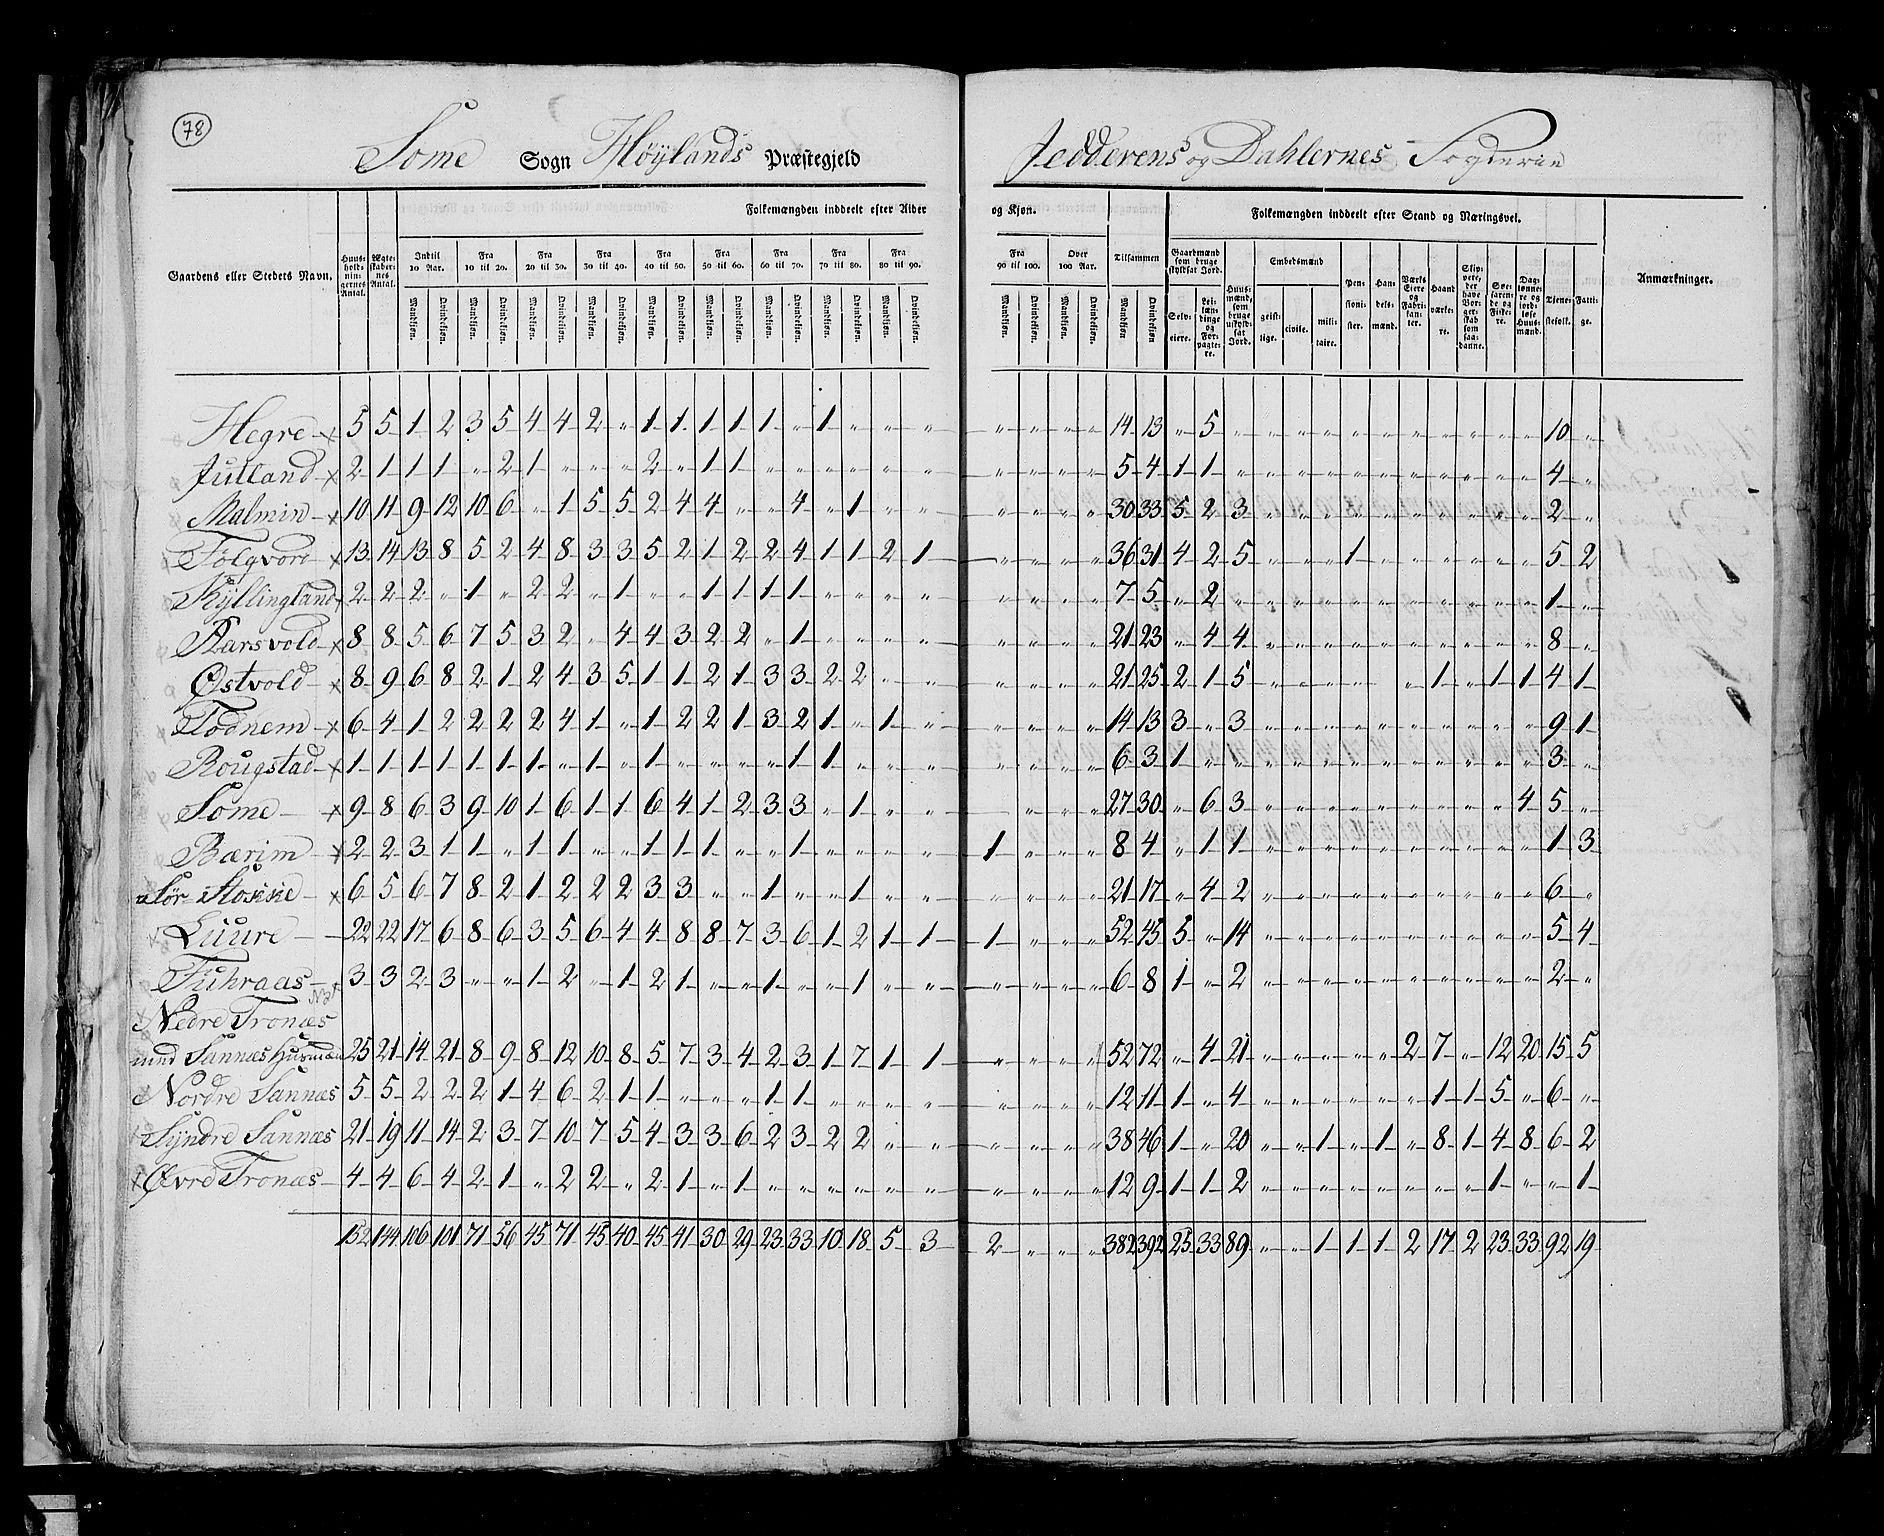 78
Some Sogn Höylands Præstegjeld Jedderens og Dahlernes Fogderie
Folkemængden inddeelt efter Alder og Kjøn. Folkemængden inddeelt efter Stand og Næringsvei.
Gaardens eller Stedets Navn. Huusholdningernes Antal. Ægteskabernes Antal. Indtil 10 Aar. Fra 10 til 20. Fra 20 til 30. Fra 30 til 40. Fra 40 til 50. Fra 50 til 60. Fra 60 til 70. Fra 70 til 80. Fra 80 til 90. Fra 90 til 100. Over 100 Aar. Tilsammen Gaardmænd som bruge skyldsat Jord. Huusmænd, som bruge uskyldsat Jord. Embedsmænd Pensionister. Handelsmænd. Værks Eiere og Fabrikanter. Haandværkere. Skippere, der have Borgerskab som saadanne. Søefarende og Fiskere. Daglønnere og jordløse Huusmænd. Tjenestefolk. Fattige. Anmærkninger.
Mandkjøn. Qvindekjøn. Mandkjøn. Qvindekjøn. Mandkjøn. Qvindekjøn. Mandkjøn. Qvindekjøn. Mandkjøn. Qvindekjøn. Mandkjøn. Qvindekjøn. Mandkjøn. Qvindekjøn. Mandkjøn. Qvindekjøn. Mandkjøn. Qvindekjøn. Mandkjøn. Qvindekjøn. Mandkjøn. Qvindekjøn. Mandkjøn. Qvindekjøn. Selveiere. Leilændinge og Forpagtere. geistlige. civile. militaire.
Hegre 5 5 1 2 3 5 4 4 2 " 1 1 1 1 1 " 1 " " " " " " " 14 13 " 5 " " " " " " " " " " " 10 "
Jutland 2 1 1 1 " 2 1 " " " 2 " 1 1 " " " " " " " " " " 5 4 1 1 " " " " " " " " " " " 4 "
Malmin 10 11 9 12 10 6 " 1 5 5 2 4 4 " " 4 " 1 " " " " " " 30 33 5 2 3 " " " " " " " " " " 2 "
Folqvord 13 14 13 8 5 2 4 8 3 3 5 2 1 2 2 4 1 1 2 1 " " " " 36 31 4 2 5 " " " 1 " " " " " " 5 2
Kyllingland 2 2 2 " 1 " 2 2 " 1 " " 1 1 1 1 " " " " " " " " 7 5 " 2 " " " " " " " " " " " 1 "
Aarsvold 8 8 5 6 7 5 3 2 " 4 4 3 2 2 " 1 " " " " " " " " 21 23 " 4 4 " " " " " " " " " " 8 "
Østvold 8 9 6 8 2 1 2 4 3 5 1 1 2 1 3 3 2 2 " " " " " " 21 25 2 1 5 " " " " " 1 " 1 1 4 1
Todnem 6 4 1 2 2 2 2 4 1 " 1 2 2 1 3 2 1 " 1 " " " " " 14 13 3 " 3 " " " " " " " " " " 9 1
Rougstad 1 1 1 1 1 1 1 " 1 " 1 " " " " 1 1 " " " " " " " 6 3 1 " " " " " " " " " " " " 3 "
Some 9 8 6 3 9 10 1 6 1 1 6 4 1 2 3 3 " 1 " " " " " 27 30 " 6 3 " " " " " " " " " 4 5 "
Bærim 2 2 3 1 1 " 1 1 " " 1 1 1 " " 1 " " " " 1 " " " 8 4 " 1 1 " " " " " " " " " " 1 3
Sør Stokke 6 5 6 7 8 2 1 2 2 2 3 3 " " 1 " " 1 " " " " " " 21 17 " 4 2 " " " " " " " " " " 6 "
Luure 22 22 17 6 8 6 3 5 6 4 4 8 8 7 3 6 1 2 1 1 1 " " " 52 45 5 " 14 " " " " " " " " " " 5 4
Fuhraas 3 3 2 3 " " 1 2 " 1 2 1 " " 1 " " 1 " " " " " " 6 8 1 " 2 " " " " " " " " " " 2 "
Nedre Tronæs
med Sannæs Huusmænd 25 21 14 21 8 9 8 12 10 8 5 7 3 4 2 3 1 7 1 1 " " " " 52 72 " 4 21 " " " " " 2 7 " 12 20 15 5
Nordre Sannæs 5 5 2 2 2 1 4 6 2 1 1 " " " 1 1 " " " " " " " " 12 11 1 " 4 " " " " " " 1 1 5 " 6 "
Syndre Sannæs 21 19 11 14 2 3 7 10 7 5 4 3 3 6 2 3 2 2 " " " " " " 38 46 1 " 20 " " 1 " 1 " 8 1 4 8 6 2
Øvre Tronæs 4 4 6 4 2 1 " 2 2 " 2 1 " 1 " " " " " " " " " " 12 9 1 1 2 " " " " " " " " 1 " " 1
152 144 106 101 71 56 45 71 45 40 45 41 30 29 23 33 10 18 5 3 2 " " " 382 392 25 33 89 " " 1 1 1 2 17 2 23 33 92 19